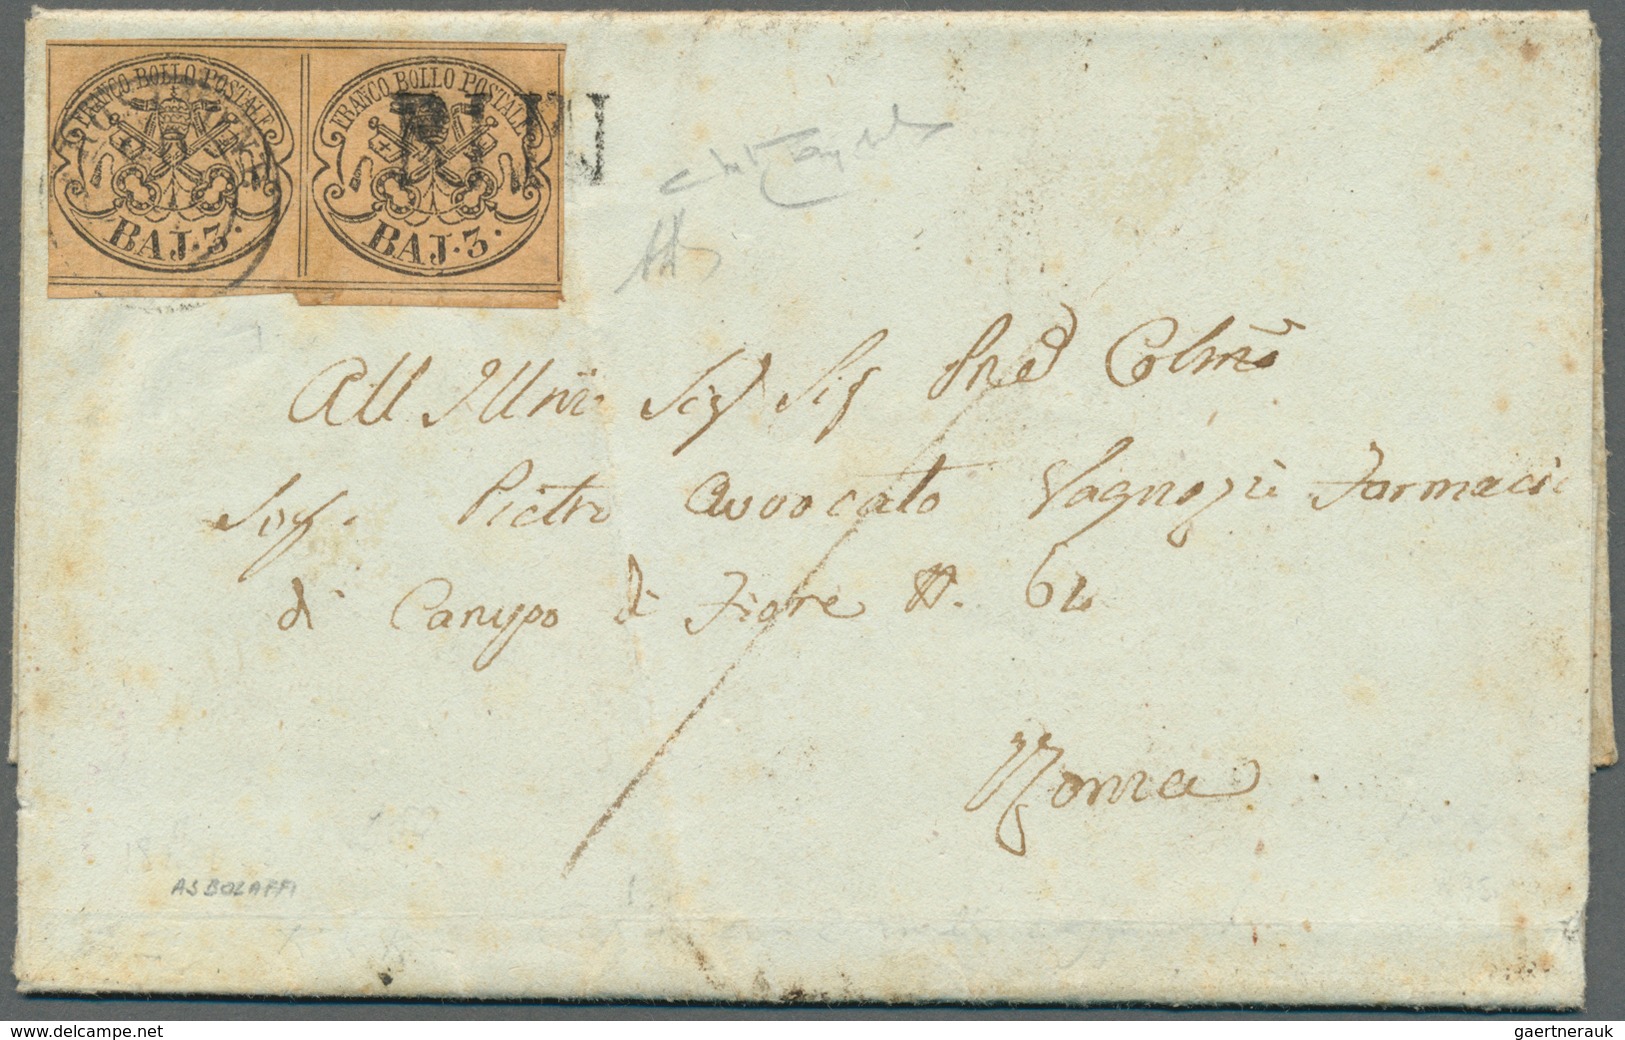 FRANCO BOLLO POSTALE FRANCO BOLLO POSTALE
BAJ. 3. BAJ. 3.
All Illmo Sig Sig Pne Colmo
Sig. Pietro Avvocato Vagnozzi Farmacia
di Campo di Fiore N. 62
Roma
ASBOLAFFI
gaertnerauk@delcampe.net